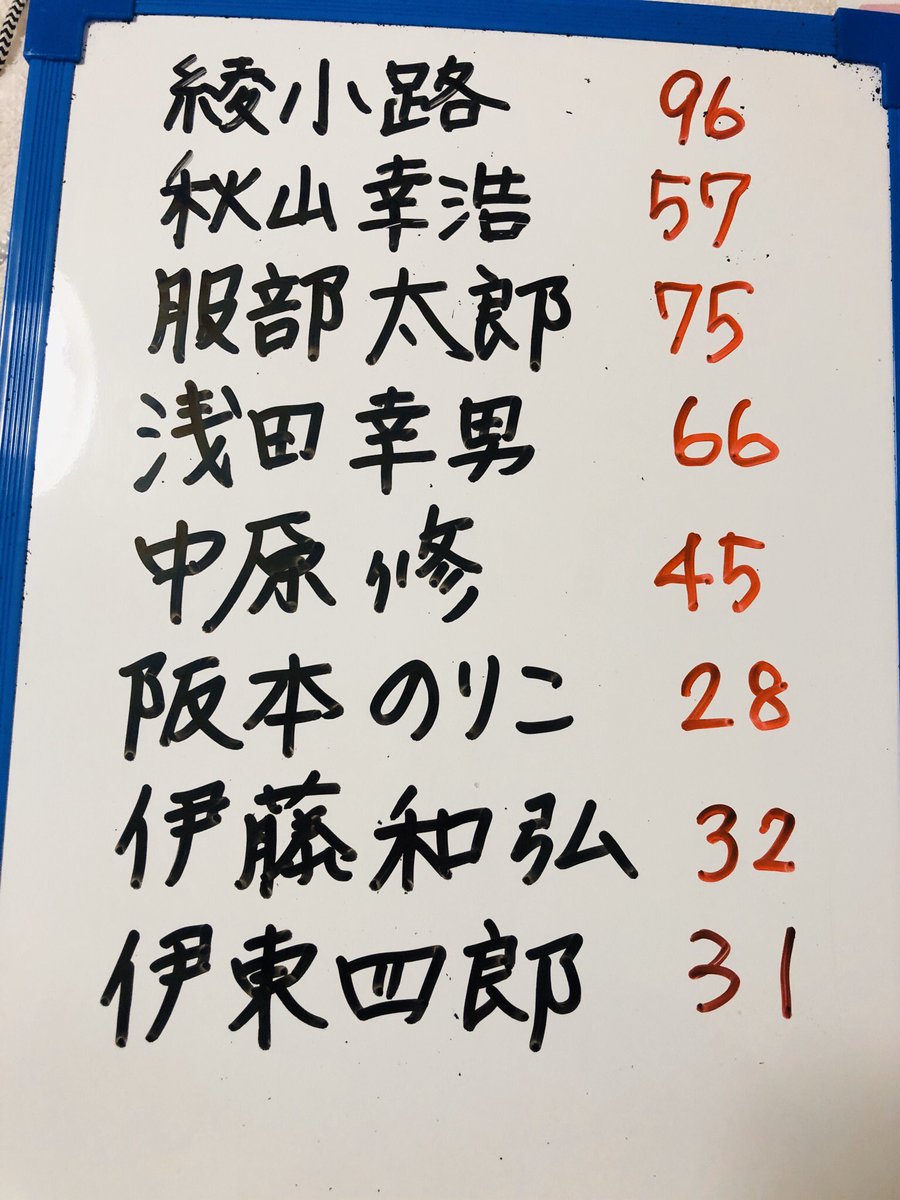 綾小路 96
秋山幸浩 57
服部太郎 75
浅田幸男 66
中原修 45
阪本のりこ 28
伊藤和弘 32
伊東四郎 31